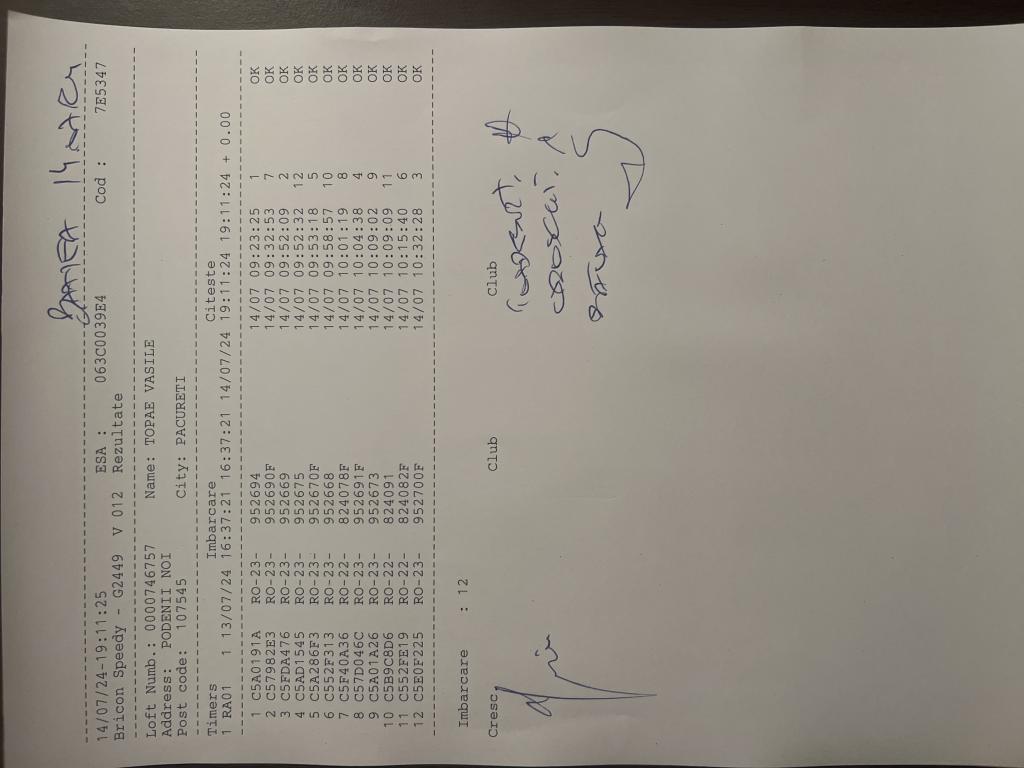 14/07/24-19:11:25 ESA : 063C0039E4 Cod : 7E5347
Bricon Speedy - G2449 V 012 Rezultate
Loft Numb.: 0000746757 Name: TOPAE VASILE
Address: PODENII NOI
Post code: 107545 City: PACURETI
Timers Imbarcare Citeste
1 RA01 1 13/07/24 16:37:21 16:37:21 14/07/24 19:11:24 19:11:24 + 0.00
1 C5A0191A RO-23- 952694 14/07 09:23:25 1 OK
2 C57982E3 RO-23- 952690F 14/07 09:32:53 7 OK
3 C5FDA476 RO-23- 952669 14/07 09:52:09 2 OK
4 C5AD1545 RO-23- 952675 14/07 09:52:32 12 OK
5 C5A286F3 RO-23- 952670F 14/07 09:53:18 5 OK
6 C552F313 RO-23- 952668 14/07 09:58:57 10 OK
7 C5F40A36 RO-22- 824078F 14/07 10:01:19 8 OK
8 C57D046C RO-23- 952691F 14/07 10:04:38 4 OK
9 C5A01A26 RO-23- 952673 14/07 10:09:02 9 OK
10 C5B9C8D6 RO-22- 824091 14/07 10:09:09 11 OK
11 C552FE19 RO-22- 824082F 14/07 10:15:40 6 OK
12 C5E0F225 RO-23- 952700F 14/07 10:32:28 3 OK
Imbarcare : 12
Cresc Club Club